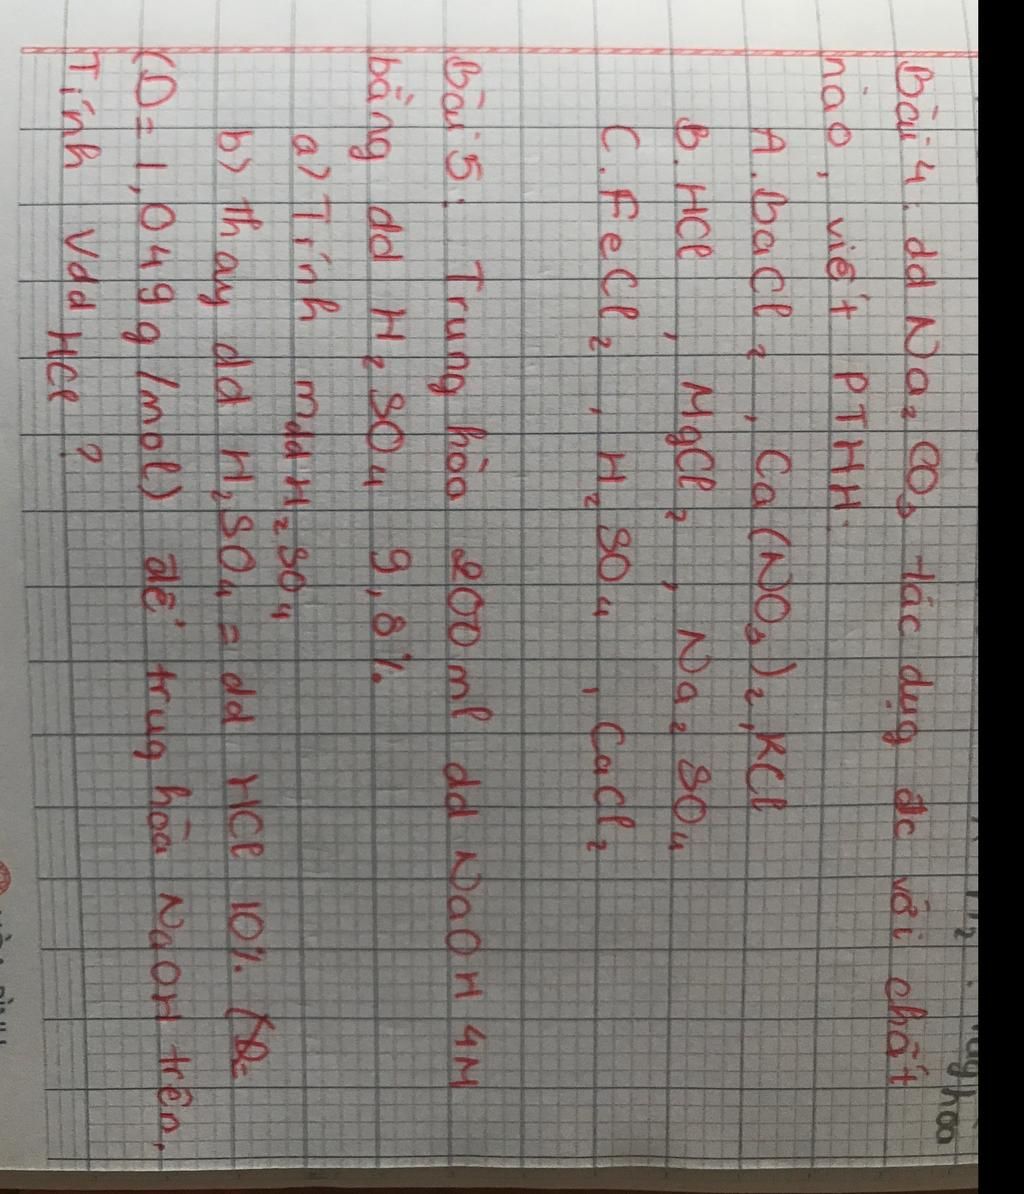 Bài 4: dd Na₂CO₃ tác dụg đc với chất
nào, viết PTHH:
A. BaCl₂, Ca(NO₃)₂, KCl
B. HCl, MgCl₂, Na₂SO₄
C. FeCl₂, H₂SO₄, CaCl₂
Bài 5: Trung hòa 200ml dd NaOH 4M
bằng dd H₂SO₄ 9,8%
a) Tính mdd H₂SO₄
b) thay dd H₂SO₄ = dd HCl 10%
(D = 1,049 g/mol) để trug hòa NaOH trên,
Tính Vdd HCl ?